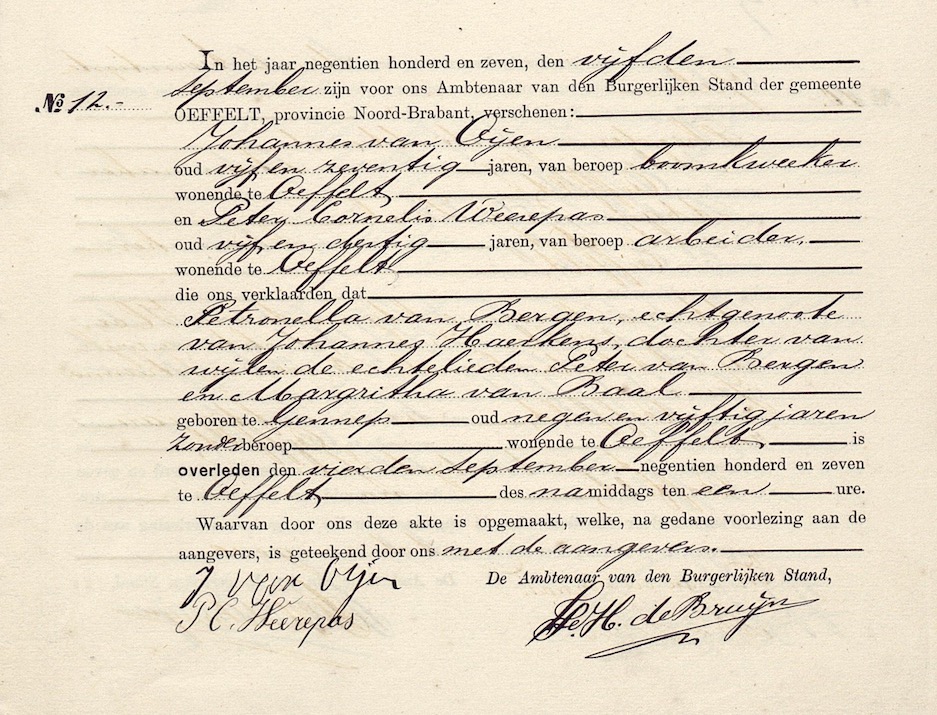 In het jaar negentien honderd en zeven, den vijfden
No 12.- september zijn voor ons Ambtenaar van den Burgerlijken Stand der gemeente
OEFFELT, provincie Noord-Brabant, verschenen:
Johannes van Oijen
oud vijf en zeventig jaren, van beroep boomkweeker
wonende te Oeffelt
en Peter Cornelis Weerepas
oud vijf en dertig jaren, van beroep arbeider,
wonende te Oeffelt
die ons verklaarden dat
Petronella van Bergen, echtgenoote
van Johannes Haerkens, dochter van
wijlen de echtelieden Peter van Bergen
en Margritha van Baal
geboren te Gennep oud negen en vijftig jaren
zonder beroep wonende te Oeffelt is
overleden den vierden september negentien honderd en zeven
te Oeffelt des namiddags ten een ure.
Waarvan door ons deze akte is opgemaakt, welke, na gedane voorlezing aan de
aangevers, is geteekend door ons met de aangevers.
De Ambtenaar van den Burgerlijken Stand,
J van Oijen
P C. Weerepas
H. de Bruijn